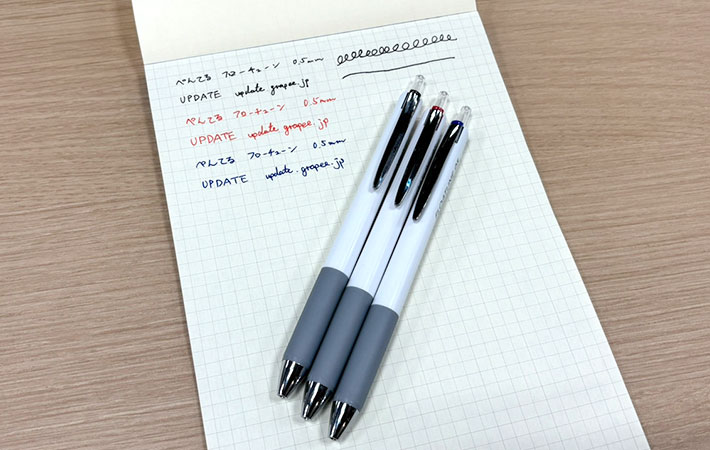 ぺんてる フローチューン 0.5mm
UPDATE update.grapee.jp
ぺんてる フローチューン 0.5mm
UPDATE update.grapee.jp
ぺんてる フローチューン 0.5mm
UPDATE update.grapee.jp